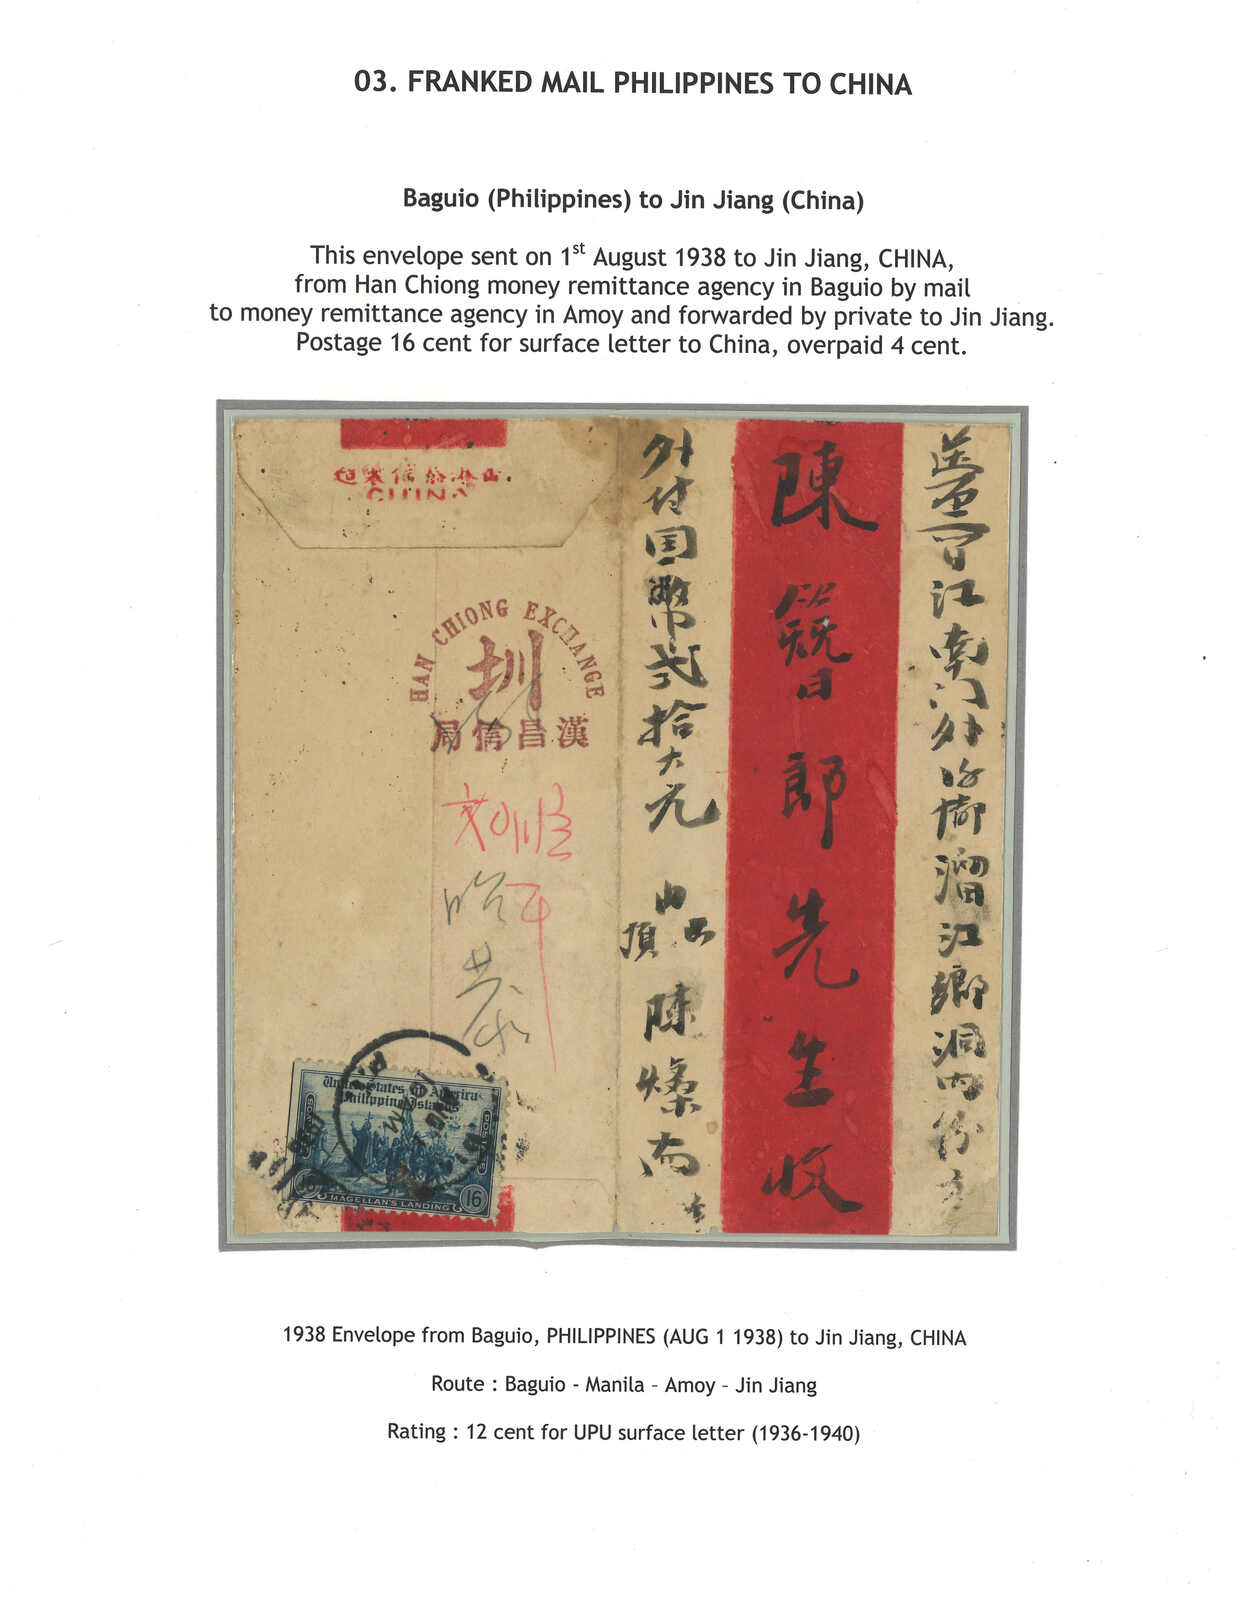 03. FRANKED MAIL PHILIPPINES TO CHINA
Baguio (Philippines) to Jin Jiang (China)
This envelope sent on 1st August 1938 to Jin Jiang, CHINA,
from Han Chiong money remittance agency in Baguio by mail
to money remittance agency in Amoy and forwarded by private to Jin Jiang.
Postage 16 cent for surface letter to China, overpaid 4 cent.
江南门外
溜江鄉洞内
陳
郎先生收
外付国幣贰拾大元
頂
陳燦南
CHINA
HAN CHIONG EXCHANGE
圳
局信昌漢
United States of America
Philippine Islands
CENTAVOS
POSTAGE
MAGELLAN'S LANDING
16
1938 Envelope from Baguio, PHILIPPINES (AUG 1 1938) to Jin Jiang, CHINA
Route : Baguio - Manila – Amoy – Jin Jiang
Rating : 12 cent for UPU surface letter (1936-1940)